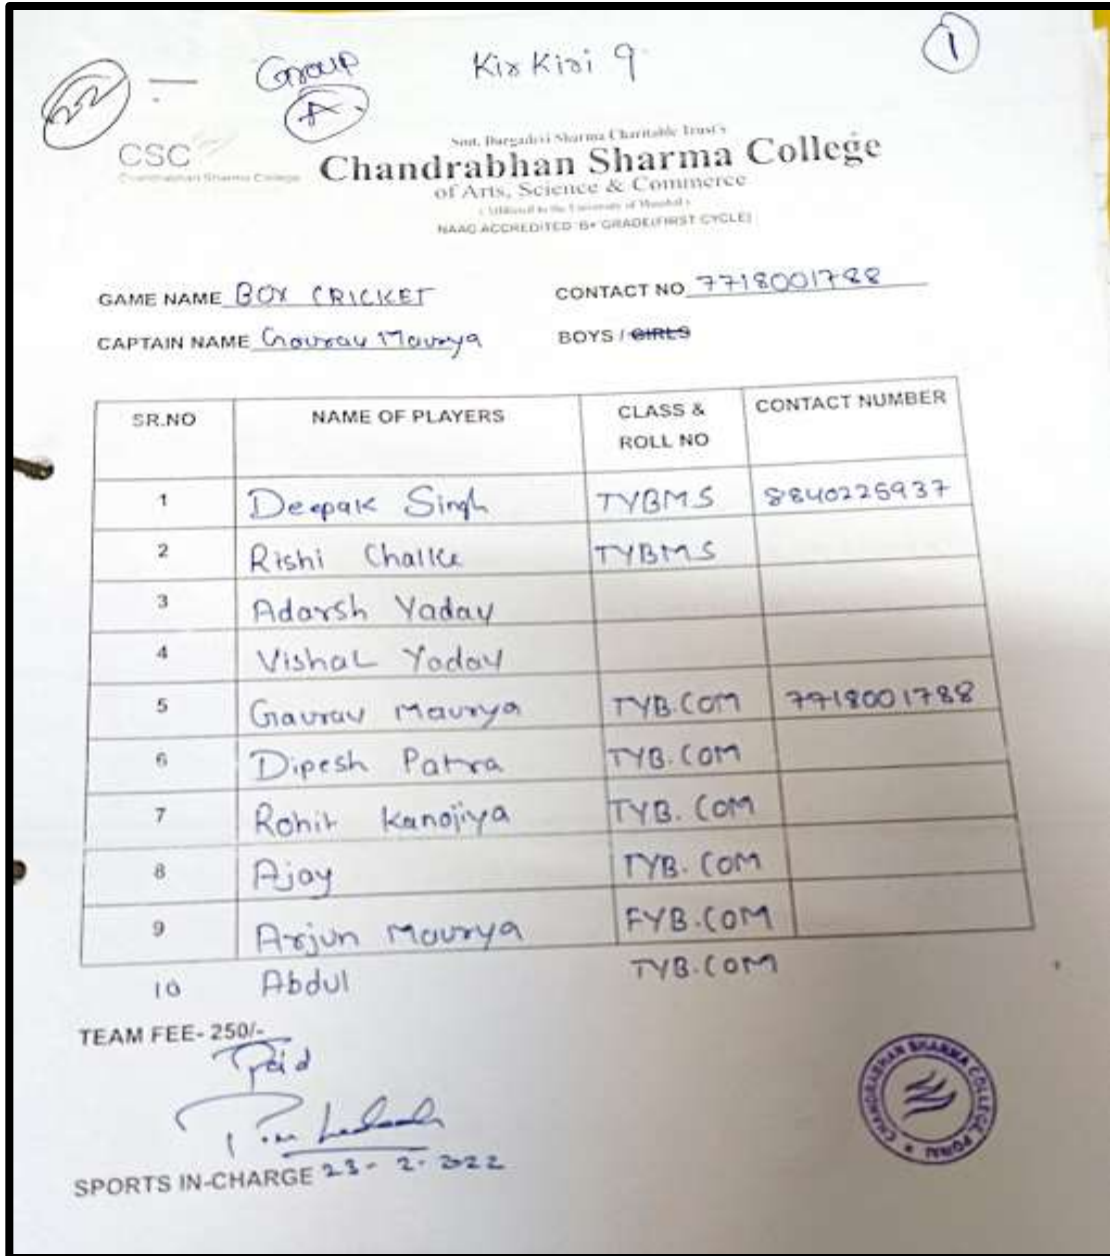 22 — Group Kirkiri 9 1
A
CSC
Chandrabhan Sharma College
Smt. Durgadevi Sharma Charitable Trust's
Chandrabhan Sharma College
of Arts, Science & Commerce
( Affiliated to the University of Mumbai )
NAAC ACCREDITED 'B+' GRADE(FIRST CYCLE)
GAME NAME BOX CRICKET CONTACT NO 7718001788
CAPTAIN NAME Gaurav Maurya BOYS / GIRLS
SR.NO NAME OF PLAYERS CLASS & ROLL NO CONTACT NUMBER
1 Deepak Singh TYBMS 8840225937
2 Rishi Chalke TYBMS
3 Adarsh Yadav
4 Vishal Yadav
5 Gaurav Maurya TYB.COM 7718001788
6 Dipesh Patra TYB.COM
7 Rohit Kanojiya TYB.COM
8 Ajay TYB.COM
9 Arjun Mourya FYB.COM
10 Abdul TYB.COM
TEAM FEE- 250/-
Paid
SPORTS IN-CHARGE 23-2-2022
CHANDRABHAN SHARMA COLLEGE POWAI